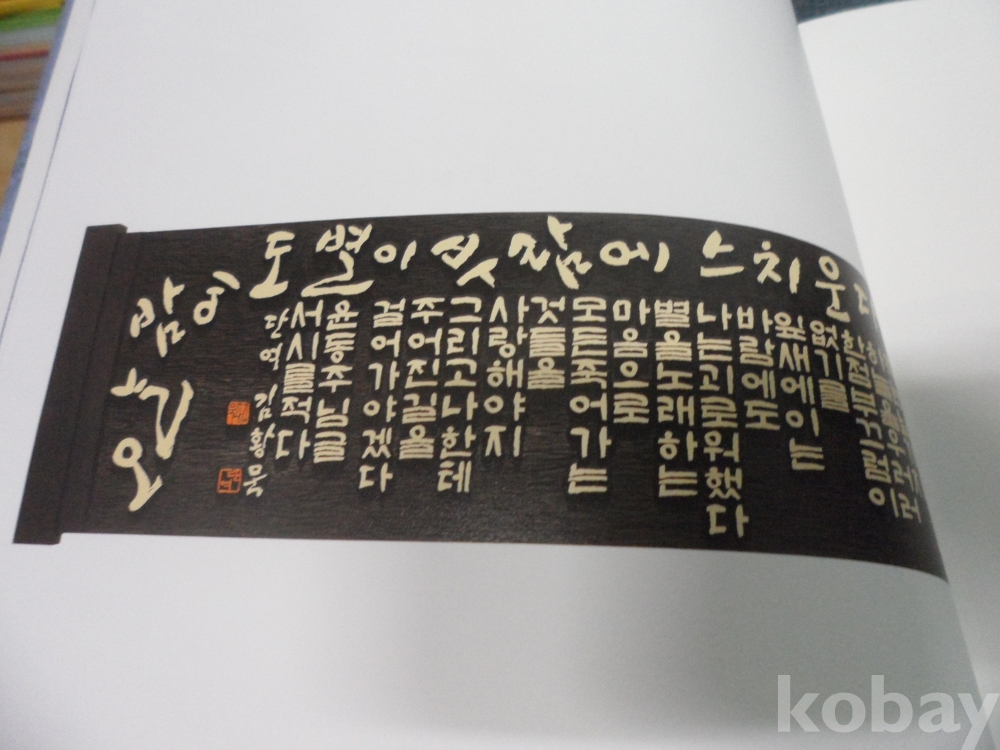 오늘 밤에도 별이 바람에 스치운
한점부끄럼이
없기를
잎새에이는
바람에도
나는괴로워했다
별을노래하는
마음으로
모든죽어가는
것들을
사랑해야지
그리고나한테
주어진길을
걸어가야겠다
윤동주님
서시를적다
kobay